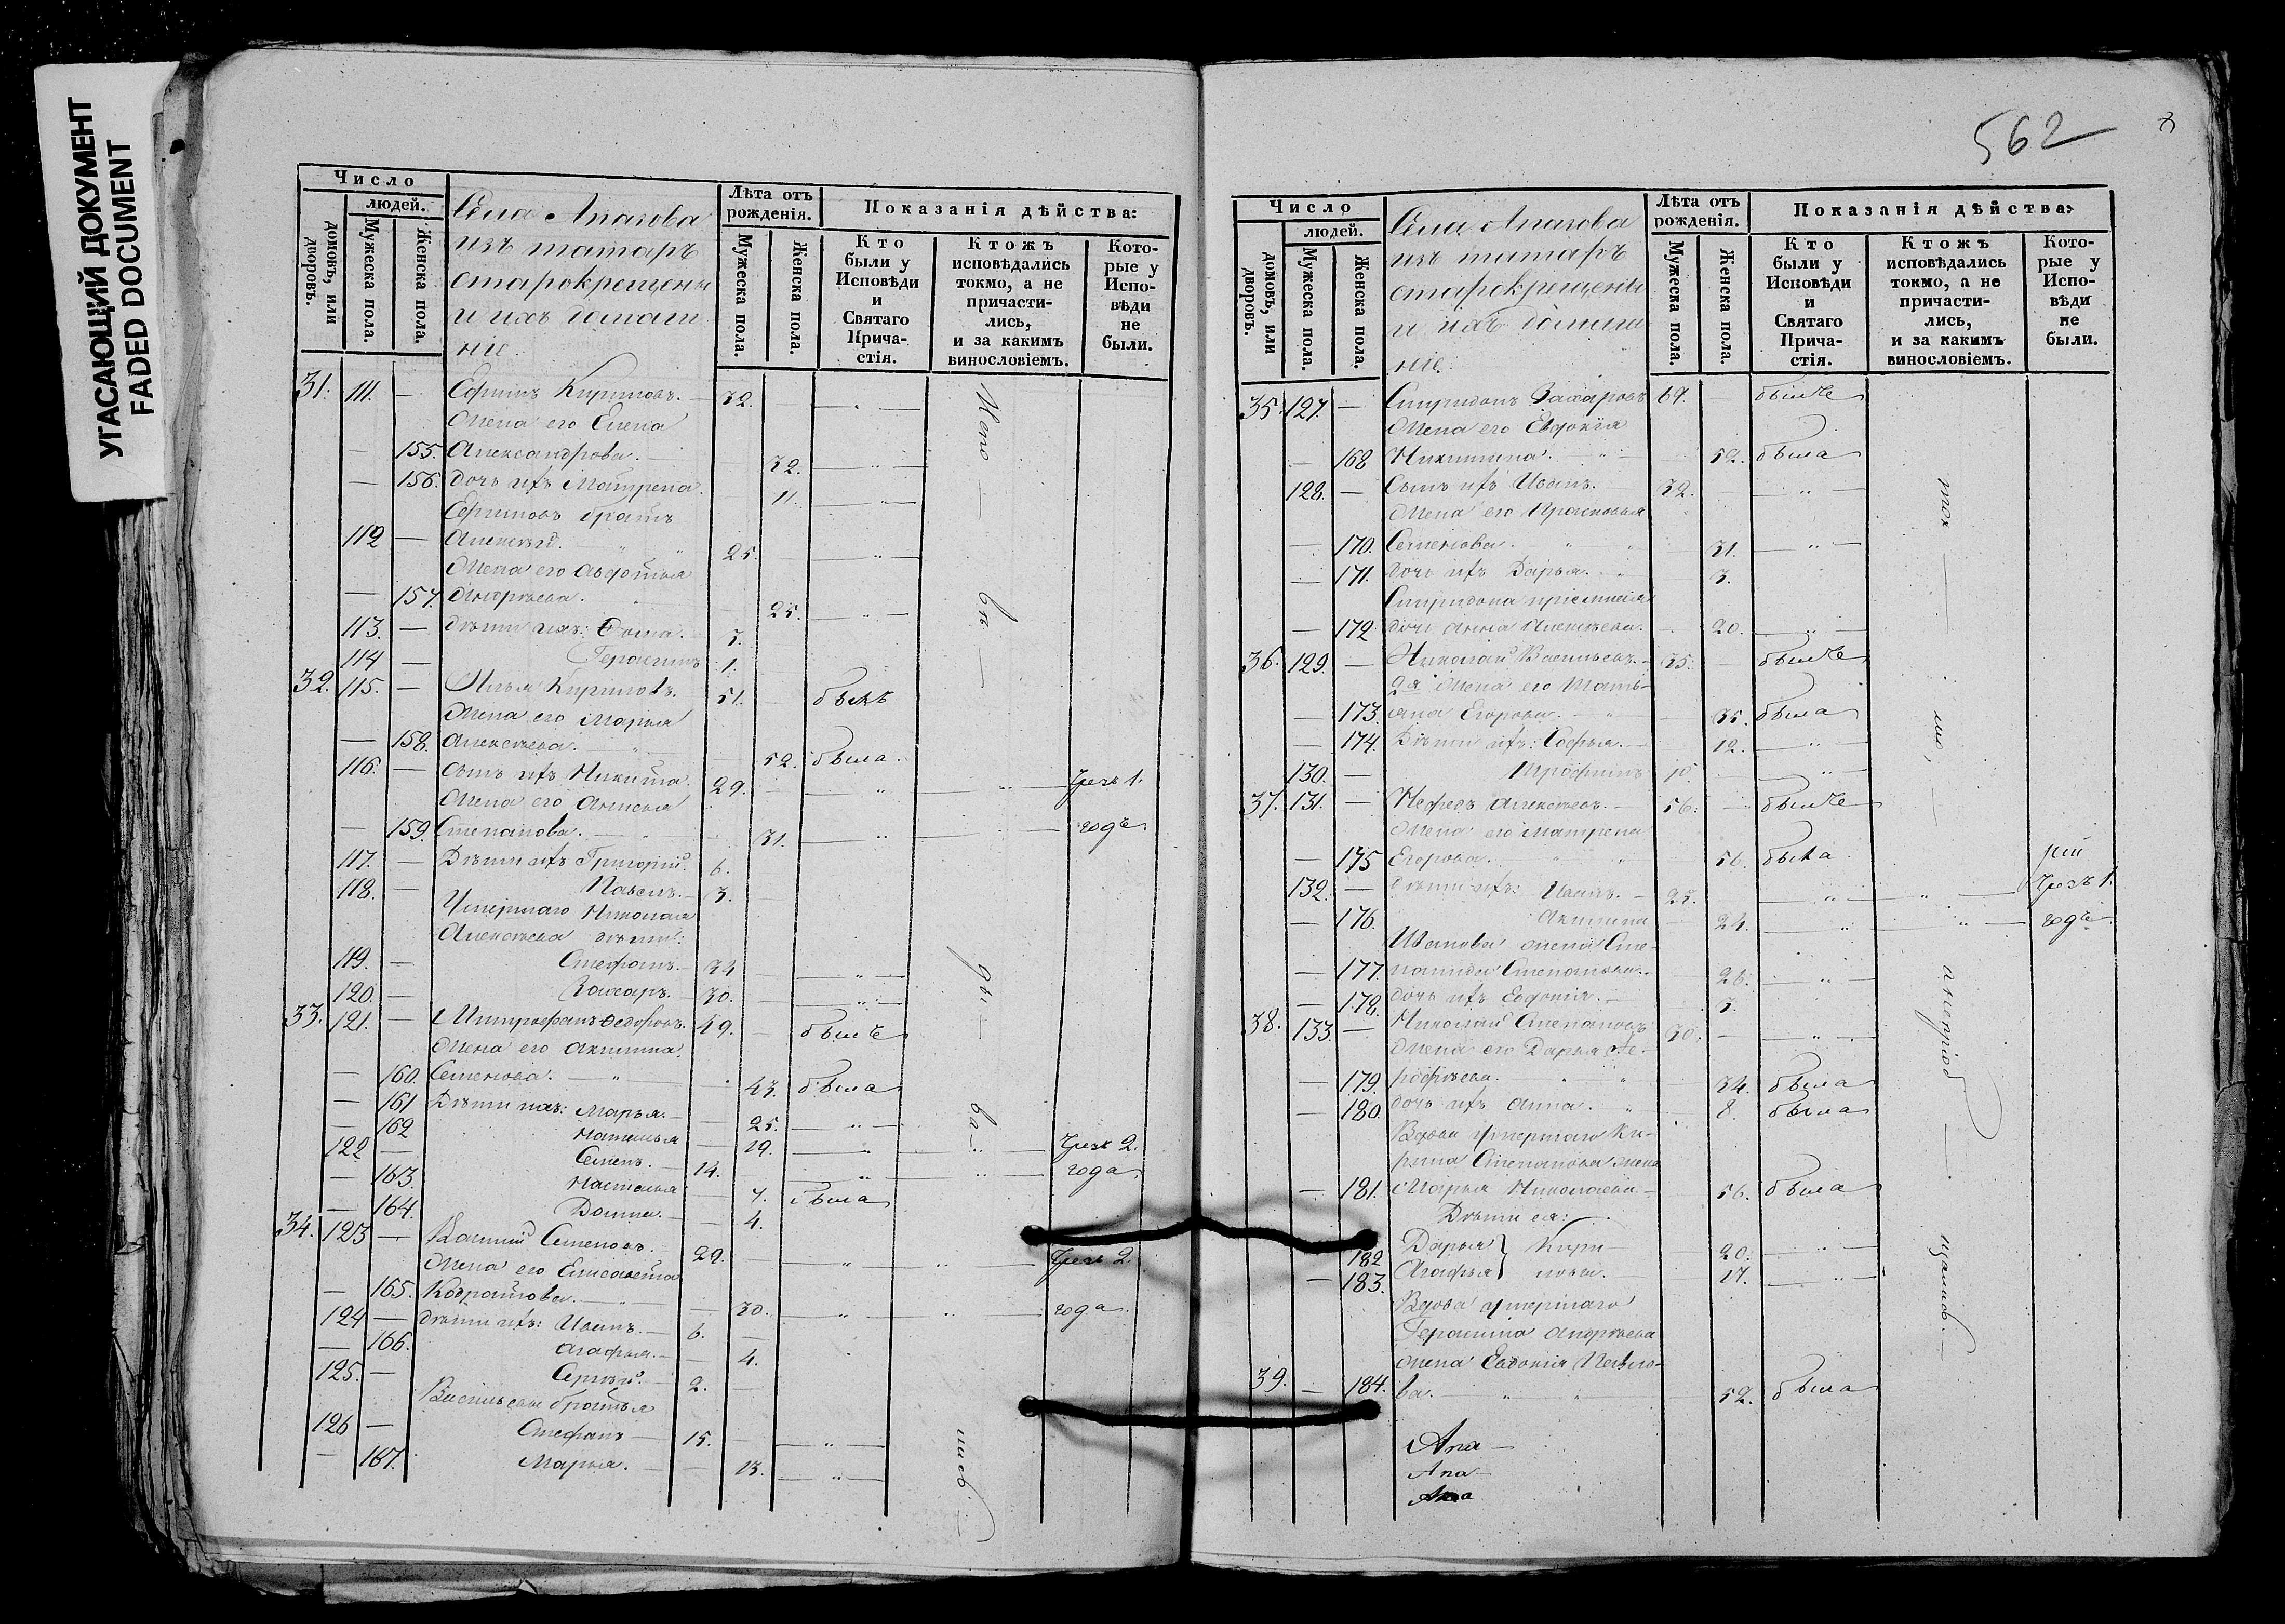 УГАСАЮЩИЙ ДОКУМЕНТ
FADED DOCUMENT
Число
людей.
домовъ, или дворовъ.
Мужеска пола.
Женска пола.
Села Апазова
изъ татаръ
старокрещены
и ихъ домаш
ніе.
Лѣта отъ рожденія.
Мужеска пола.
Женска пола.
Показанія дѣйства:
Кто были у Исповѣди и Святаго Прича-стія.
Ктожъ исповѣдались токмо, а не причасти-лись, и за какимъ винословіемъ.
Кото-рые у Испо-вѣди не были.
31. 111. — Ефимъ Кириловъ. — 32. — „ —
Жена его Елена
— 155. Александрова. — 32. — „ —
— 156. дочь ихъ Матрена. 11. — „ —
Ефимовъ братъ
112 — Алексѣй. — „ „ 25. — „ —
Жена его Авдотья
— 157. Андреева. 25. — „ —
113. — дѣти ихъ: Ѳома.
114 — Герасимъ 1.
32. 115. — Илья Кириловъ. 51. — былъ
Жена его Марья
— 158. Алексѣева. — 52. была.
116. — сынъ ихъ Никита. 29. — „ — „ — Чрезъ 1.
Жена его Анисья
— 159. Степанова. — 31. — „ — годъ
117. — Дѣти ихъ Григорій. 6.
118. — Павелъ. — 3. —
Умершаго Николая
Алексѣева дѣти:
119. — Стефанъ. — 34 — „ —
120. — Захаръ. — 30. — „ —
33. 121. — Митрофанъ Ѳедоровъ. 49. — былъ
Жена его Акилина
— 160. Семенова. — „ 43. была
— 161 Дѣти ихъ: Марья. — 25. — „ —
— 162 Наталья — 19. — „ — „ — Чрезъ 2.
122 — Семенъ. — 14. — „ — „ — года
— 163. Настасья 7. была
— 164. Домна. — 4.
34. 123 — Василій Семеновъ. — 29. — „ — „ — Чрезъ 2.
Жена его Елисавета
— 165. Кодратова. — „ — 30. — „ — „ — года.
124 — дѣти ихъ: Иванъ. — 6. —
— 166. Агафья. — 4.
125. — Сергѣй. — 2. —
Васильевы братья
126 — Стефанъ — 15. — „ —
— 167. Марья. — 13. — „ —
562
Число
людей.
домовъ, или дворовъ.
Мужеска пола.
Женска пола.
Села Апазова
изъ татаръ
старокрещены
и ихъ домаш
ніе.
Лѣта отъ рожденія.
Мужеска пола.
Женска пола.
Показанія дѣйства:
Кто были у Исповѣди и Святаго Прича-стія.
Ктожъ исповѣдались токмо, а не причасти-лись, и за какимъ винословіемъ.
Кото-рые у Испо-вѣди не были.
35. 127. — Спиридонъ Захаровъ 69. былъ
Жена его Евдокія
— 168 Никитина. — „ — 52. была
128. — Сынъ ихъ Иванъ. — 32. — „ —
Жена его Прасковья
— 170. Семенова. „ „ 31. — „ —
— 171. дочь ихъ Дарья. — 3.
Спиридона пріемная
— 172. дочь Анна Алексѣева. — 20. — „ —
36. 129. — Николай Васильевъ. — 35. — былъ
2я жена его Тать-
— 173. яна Егорова. — „ 35. была
— 174. Дѣти ихъ: Софья. — 12. — „ —
130. — Трофимъ 10 — „ —
37. 131. — Нефедъ Алексѣевъ. — 56. — былъ
Жена его Матрена
— 175 Егорова. „ „ 56. была.
132. — дѣти ихъ: Иванъ. — 25. — „ — „ — Чрезъ 1.
— 176. Акилина — 24. — „ — „ — годъ
Иванова жена Сте-
— 177. панида Степанова. — 26. — „ —
— 178. дочь ихъ Евдокія. — 3.
38. 133. — Николай Степановъ 30. — „ —
Жена его Дарья
— 179. — 34. была
— 180. дочь ихъ Анна. — „ 8. была
Вдова умершаго Ки-
рила Степанова жена
— 181. Марья Николаева — 56. была
Дѣти ея:
182 Дарья } Кири- 20. — „ —
— 183. Агафья } лова. — 17. — „ —
Вдова умершаго
Герасима Андреева
жена Евдокія Павло-
39. — 184. ва. — „ „ 52. была
Апа —
Апа —
Апа